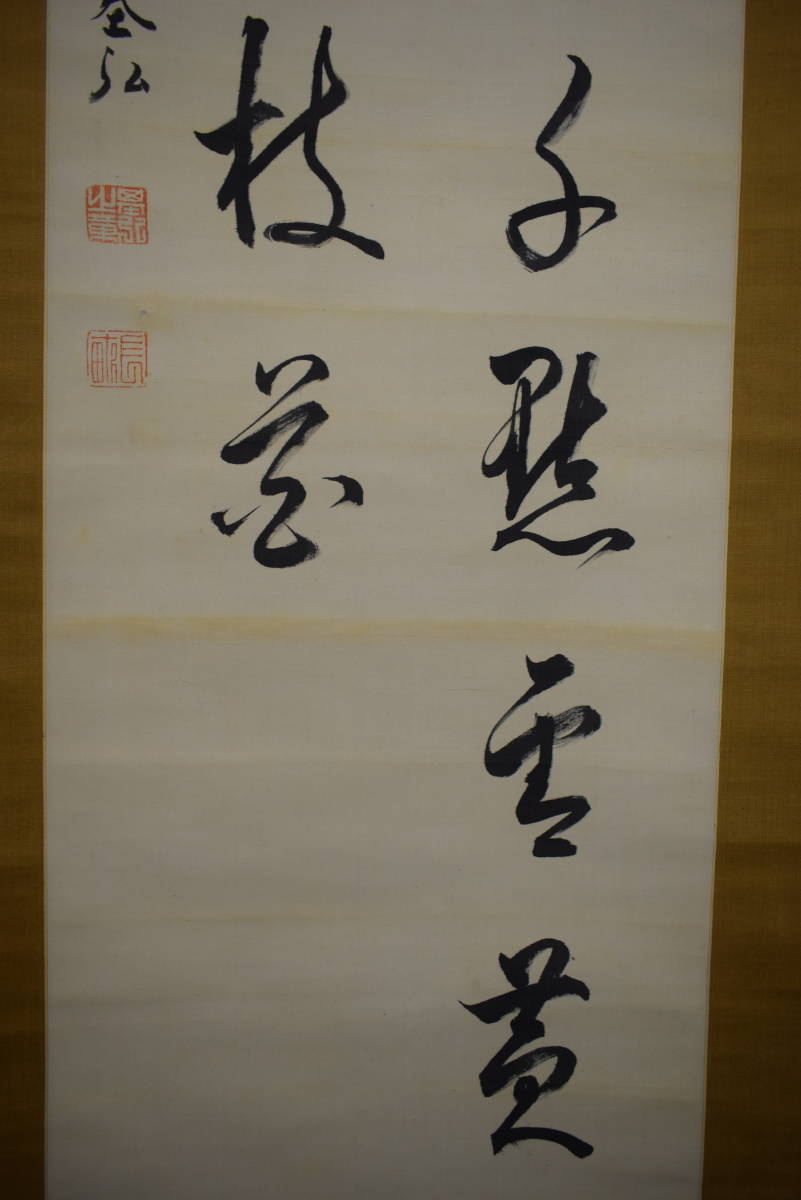 千點雪黃
枝花
弘